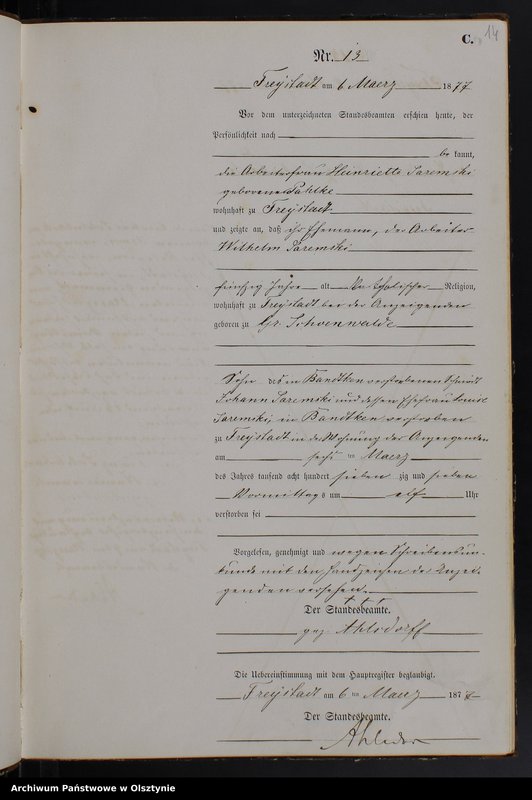 C.
14
Nr. 13
Freystadt am 6 Maerz 1877
Vor dem unterzeichneten Standesbeamten erschien heute, der
Persönlichkeit nach
be kannt,
die Arbeiterfrau Heinriette Saremski
geborene Pahlke
wohnhaft zu Freystadt
und zeigte an, daß ihr Ehemann, der Arbeiter
Wilhelm Saremski
fünfzig Jahre alt, katholischer Religion,
wohnhaft zu Freystadt bei der Anzeigenden
geboren zu Gr. Schoenwalde
Sohn des in Bandtken verstorbenen Schmidt
Johann Saremski und dessen Ehefrau
Saremski, in Bandtken verstorben
zu Freystadt in der Wohnung der Anzeigenden
am sechs ten Maerz
des Jahres tausend acht hundert sieben zig und sieben
Vormittags um elf Uhr
verstorben sei
Vorgelesen, genehmigt und wegen Schreibensun-
kunde mit den Handzeichen der Anzei-
genden versehen.
+ + +
Der Standesbeamte.
gez. Ahlsdorff
Die Uebereinstimmung mit dem Hauptregister beglaubigt.
Freystadt am 6 ten Maerz 187
Der Standesbeamte.
Archiwum Państwowe w Olsztynie